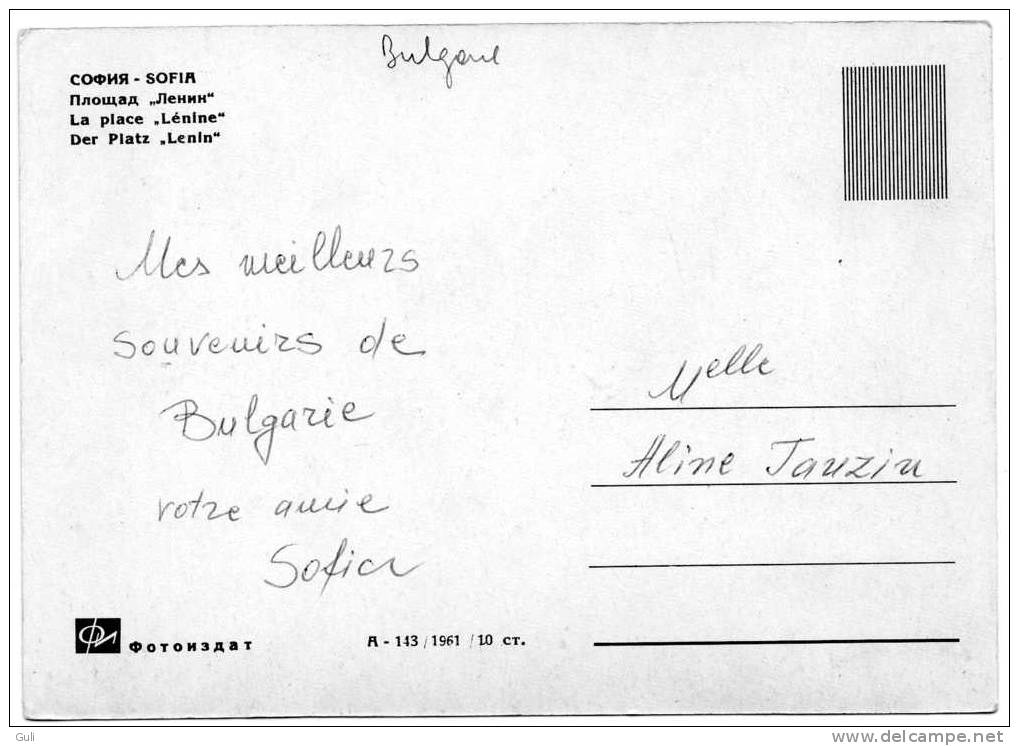 Bulgarie
СОФИЯ - SOFIA
Площад „Ленин“
La place „Lénine“
Der Platz „Lenin“
Mes meilleurs
souvenirs de
Bulgarie
votre amie
Sofia
Melle
Aline Tauzin
ФИ Фотоиздат
А - 143 / 1961 / 10 ст.
Guli
www.delcampe.net